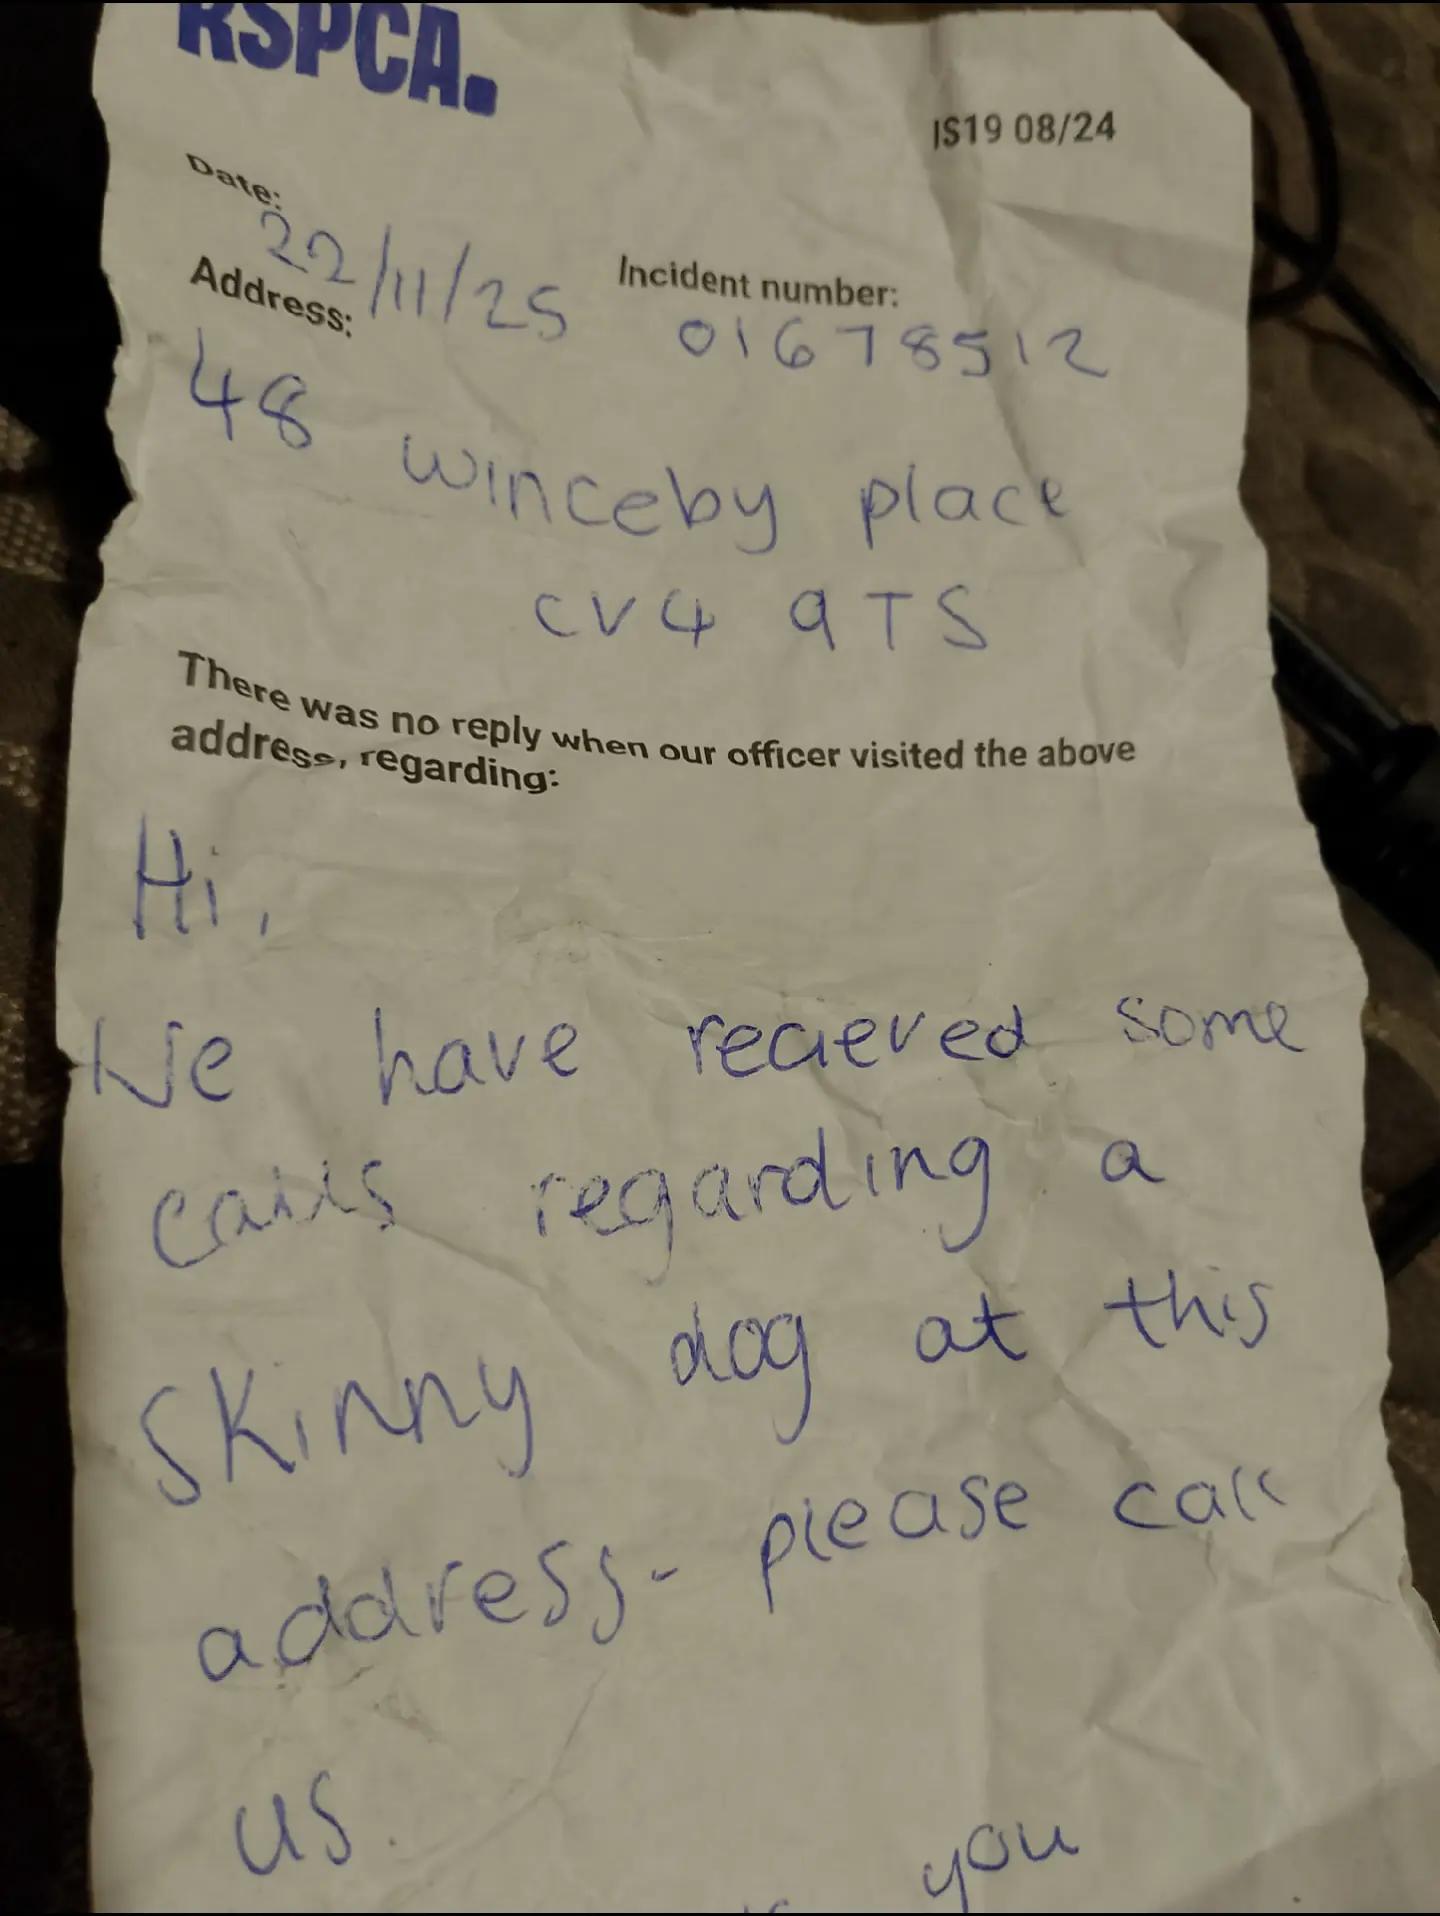 RSPCA.
IS19 08/24
Date:
22/11/25
Incident number:
01678512
Address:
48 winceby place
CV4 9TS
There was no reply when our officer visited the above
address, regarding:
Hi,
We have recieved some
calls regarding a
skinny dog at this
address - please call
us.
you